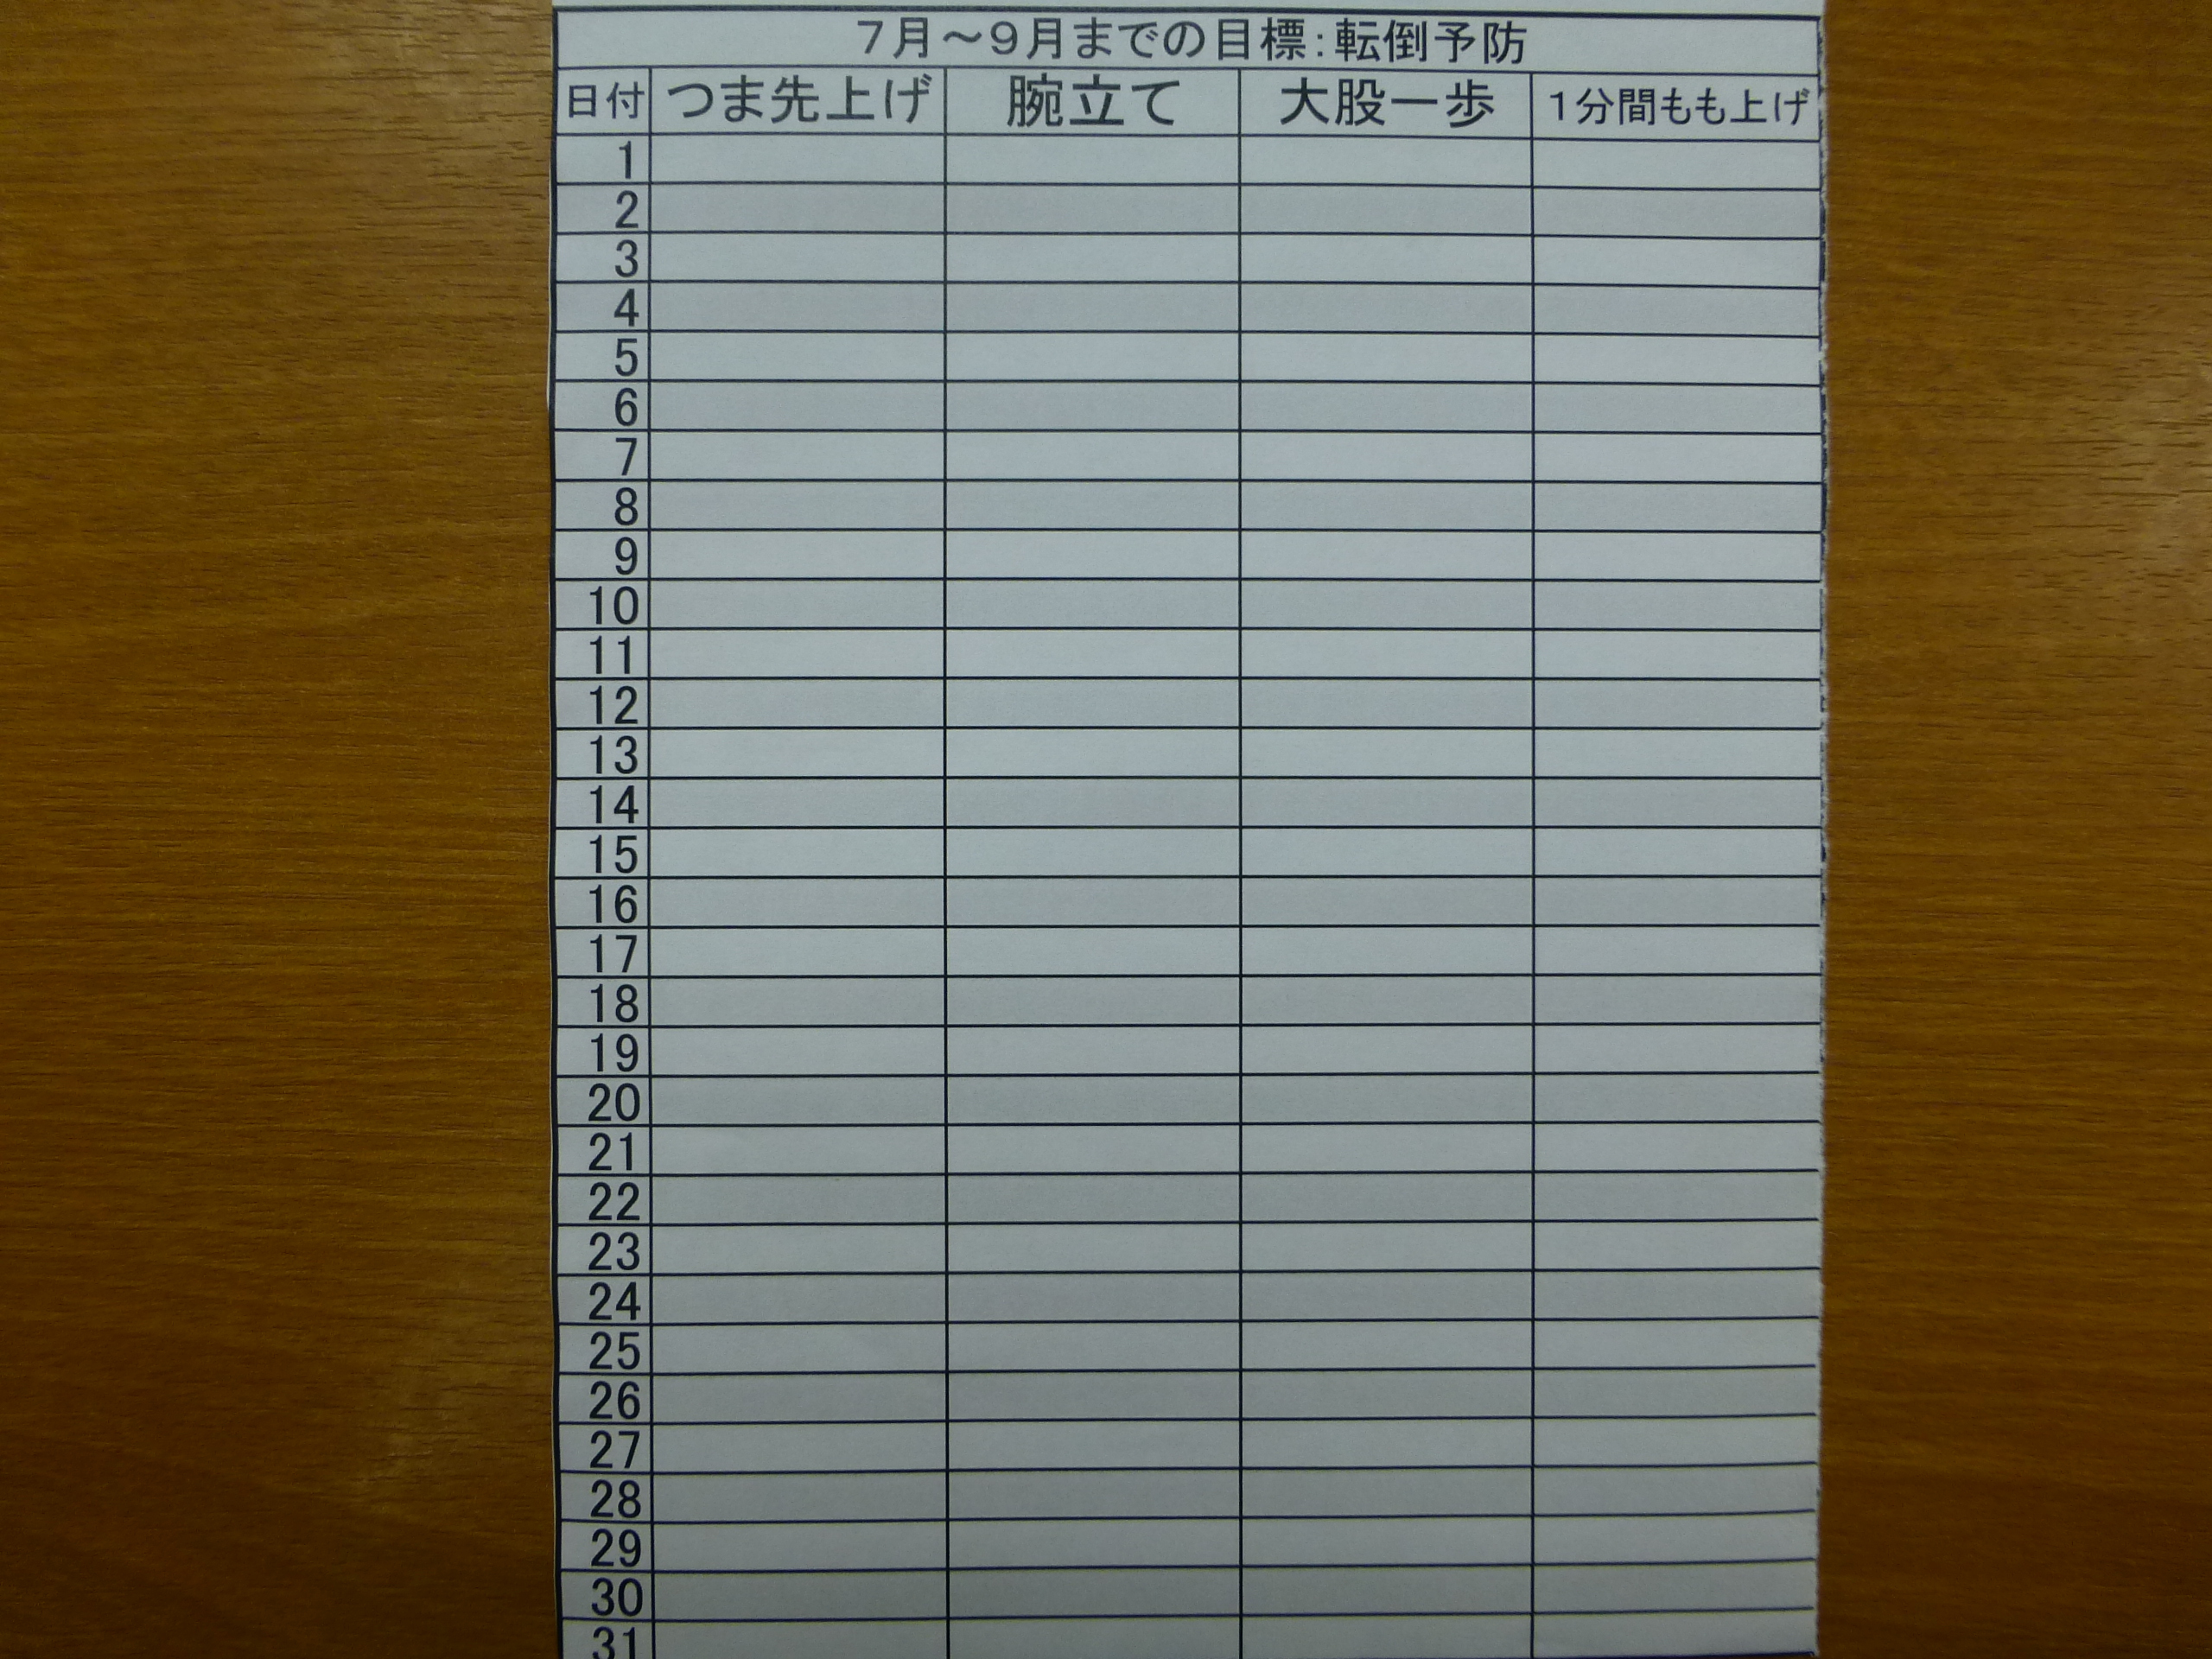 7月～9月までの目標:転倒予防
日付 つま先上げ 腕立て 大股一歩 1分間もも上げ
1
2
3
4
5
6
7
8
9
10
11
12
13
14
15
16
17
18
19
20
21
22
23
24
25
26
27
28
29
30
31